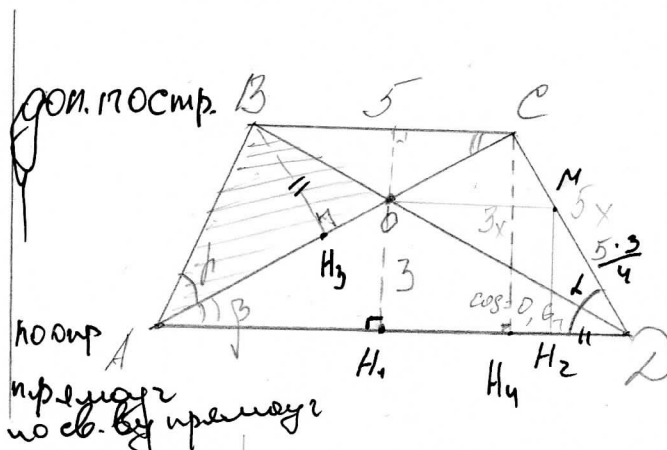 доп. постр.
B 5 C
O M
3x 5x
5·3/4
H₃ 3
β cos = 0,6 α
по опр A H₁ H₄ H₂ D
прямоуг
по св. ву прямоуг